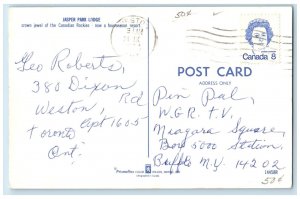 JASPER PARK LODGE
crown jewel of the Canadian Rockies - now a Summerset resort
50¢
Canada 8
POST CARD
ADDRESS ONLY
Geo Roberts,
380 Dixon
Rd
Weston,
Apt 1605
Toronto
Ont.
Pen Pal,
W.G.R. T.V.
Niagara Square,
Box 5000 Station,
Buffalo N.Y. 14202
50¢